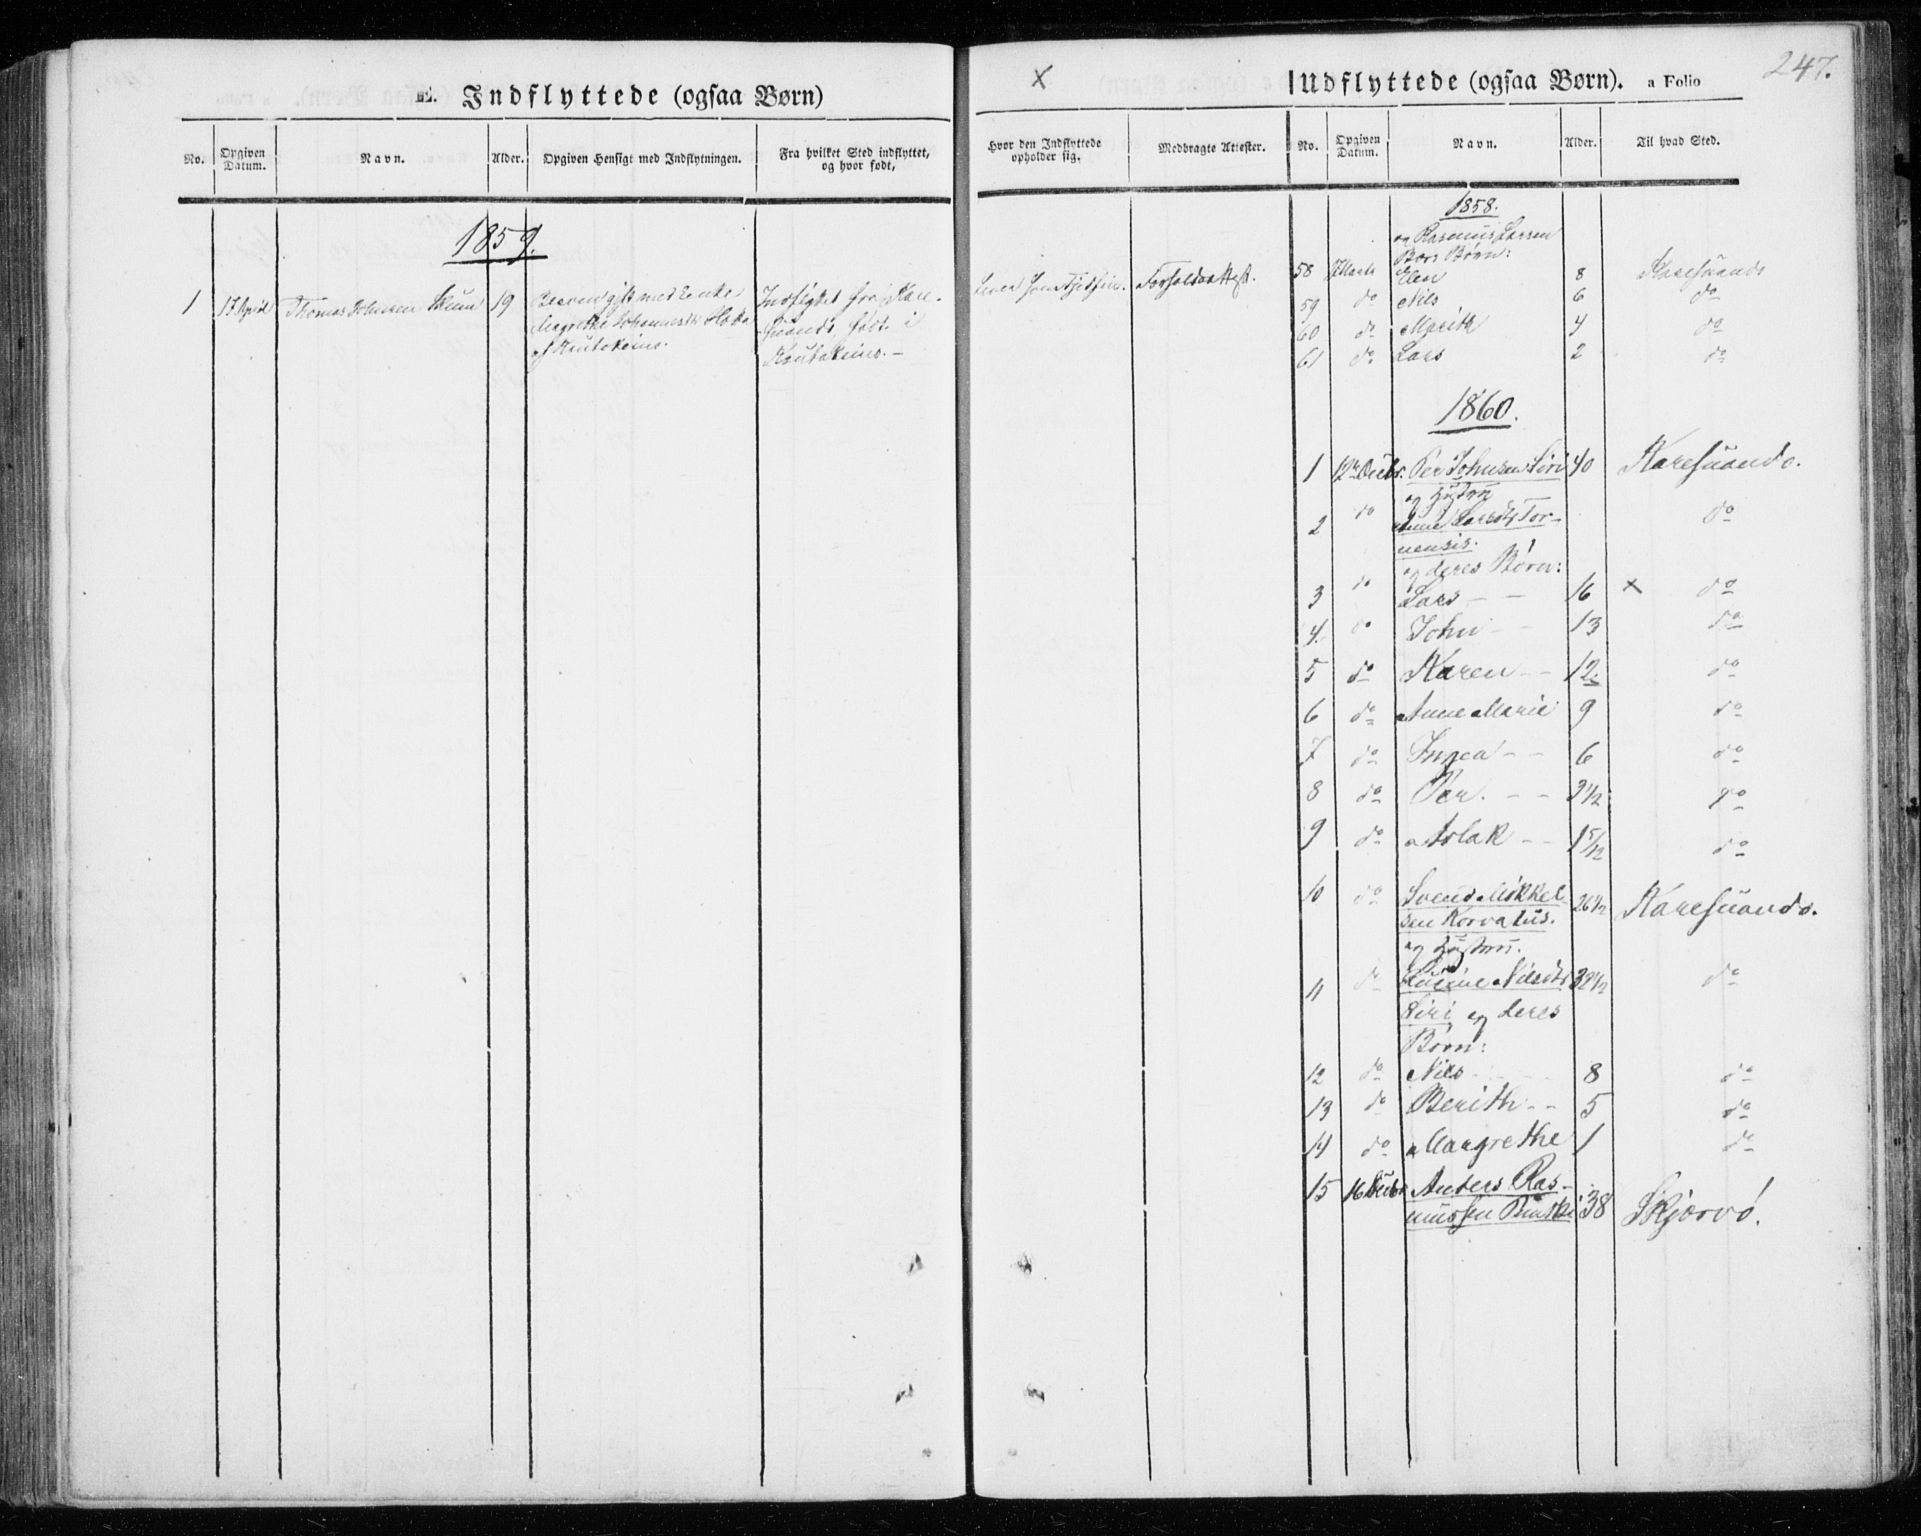 Indflyttede (ogsaa Børn)
No. Opgiven Datum. Navn. Alder. Opgiven Hensigt med Indflytningen. Fra hvilket Sted indflyttet, og hvor født,
1859.
1 17 April Thomas Johnsen Skum 19 gift med Enke
Magrethe Johannesdtr
af Koutokeino.
Indflyttet fra Kare-
suando, født i
Koutokeino. –
247.
×
Udflyttede (ogsaa Børn). a Folio
Hvor den Indflyttede opholder sig. Medbragte Attester. No. Opgiven Datum. Navn. Alder. Til hvad Sted.
1858.
og Rasmus Larsen
Bærs Børn:
58 Elen 8 Karesuando
59 do Nils 6 do
60 do Marith 4 do
61 do Lars 2 do
1860.
1 12te Decbr. Per Johnsen Siri 40 Karesuando.
og Hustru
2 do Anne Larsdtr Tor-
nensis. do
og deres Børn:
3 do Lars – – 16 × do
4. do John – – 13 do
5 do Karen – – 12. do
6 do Anne Marie 9 do
7 do Inga – – 6 do
8 do Per. – – 3 1/2 do
9 do Aslak – – 1 5/12 do
10 do Svend Mikkel-
sen Korvatus. 26 1/2 Karesuando.
og Hustru.
11 do Nilsdtr 32 1/2 do
Siri og deres
Børn:
12 do Nils 8 do
13 do Berith – – 5 do
14 do Margrethe 1 do
15 16 Decbr Anders Ras-
mussen 38 Skjervø.